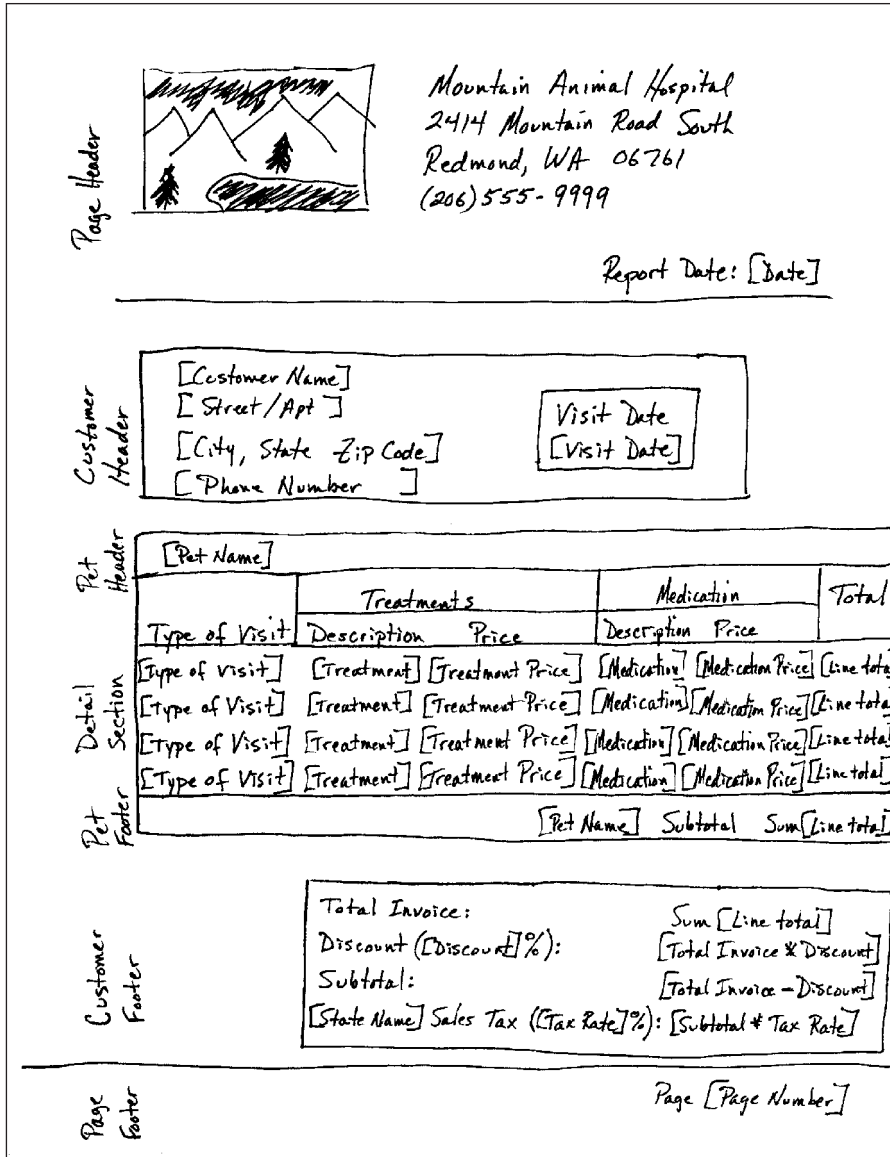 Page Header
Mountain Animal Hospital
2414 Mountain Road South
Redmond, WA 06761
(206) 555-9999
Report Date: [Date]
Customer Header
[Customer Name]
[Street/Apt]
[City, State Zip Code]
[Phone Number]
Visit Date
[Visit Date]
Pet Header
[Pet Name]
Treatments Medication Total
Type of Visit Description Price Description Price
Detail Section
[Type of visit] [Treatment] [Treatment Price] [Medication] [Medication Price] [Line total
[Type of Visit] [Treatment] [Treatment Price] [Medication] [Medication Price] [Line total
[Type of Visit] [Treatment] [Treatment Price] [Medication] [Medication Price] [Line total
[Type of Visit] [Treatment] [Treatment Price] [Medication] [Medication Price] [Line total]
Pet Footer
[Pet Name] Subtotal Sum[Line total]
Customer Footer
Total Invoice: Sum [Line total]
Discount ([Discount]%): [Total Invoice * Discount]
Subtotal: [Total Invoice - Discount]
[State Name] Sales Tax ([Tax Rate]%): [Subtotal * Tax Rate]
Page Footer
Page [Page Number]